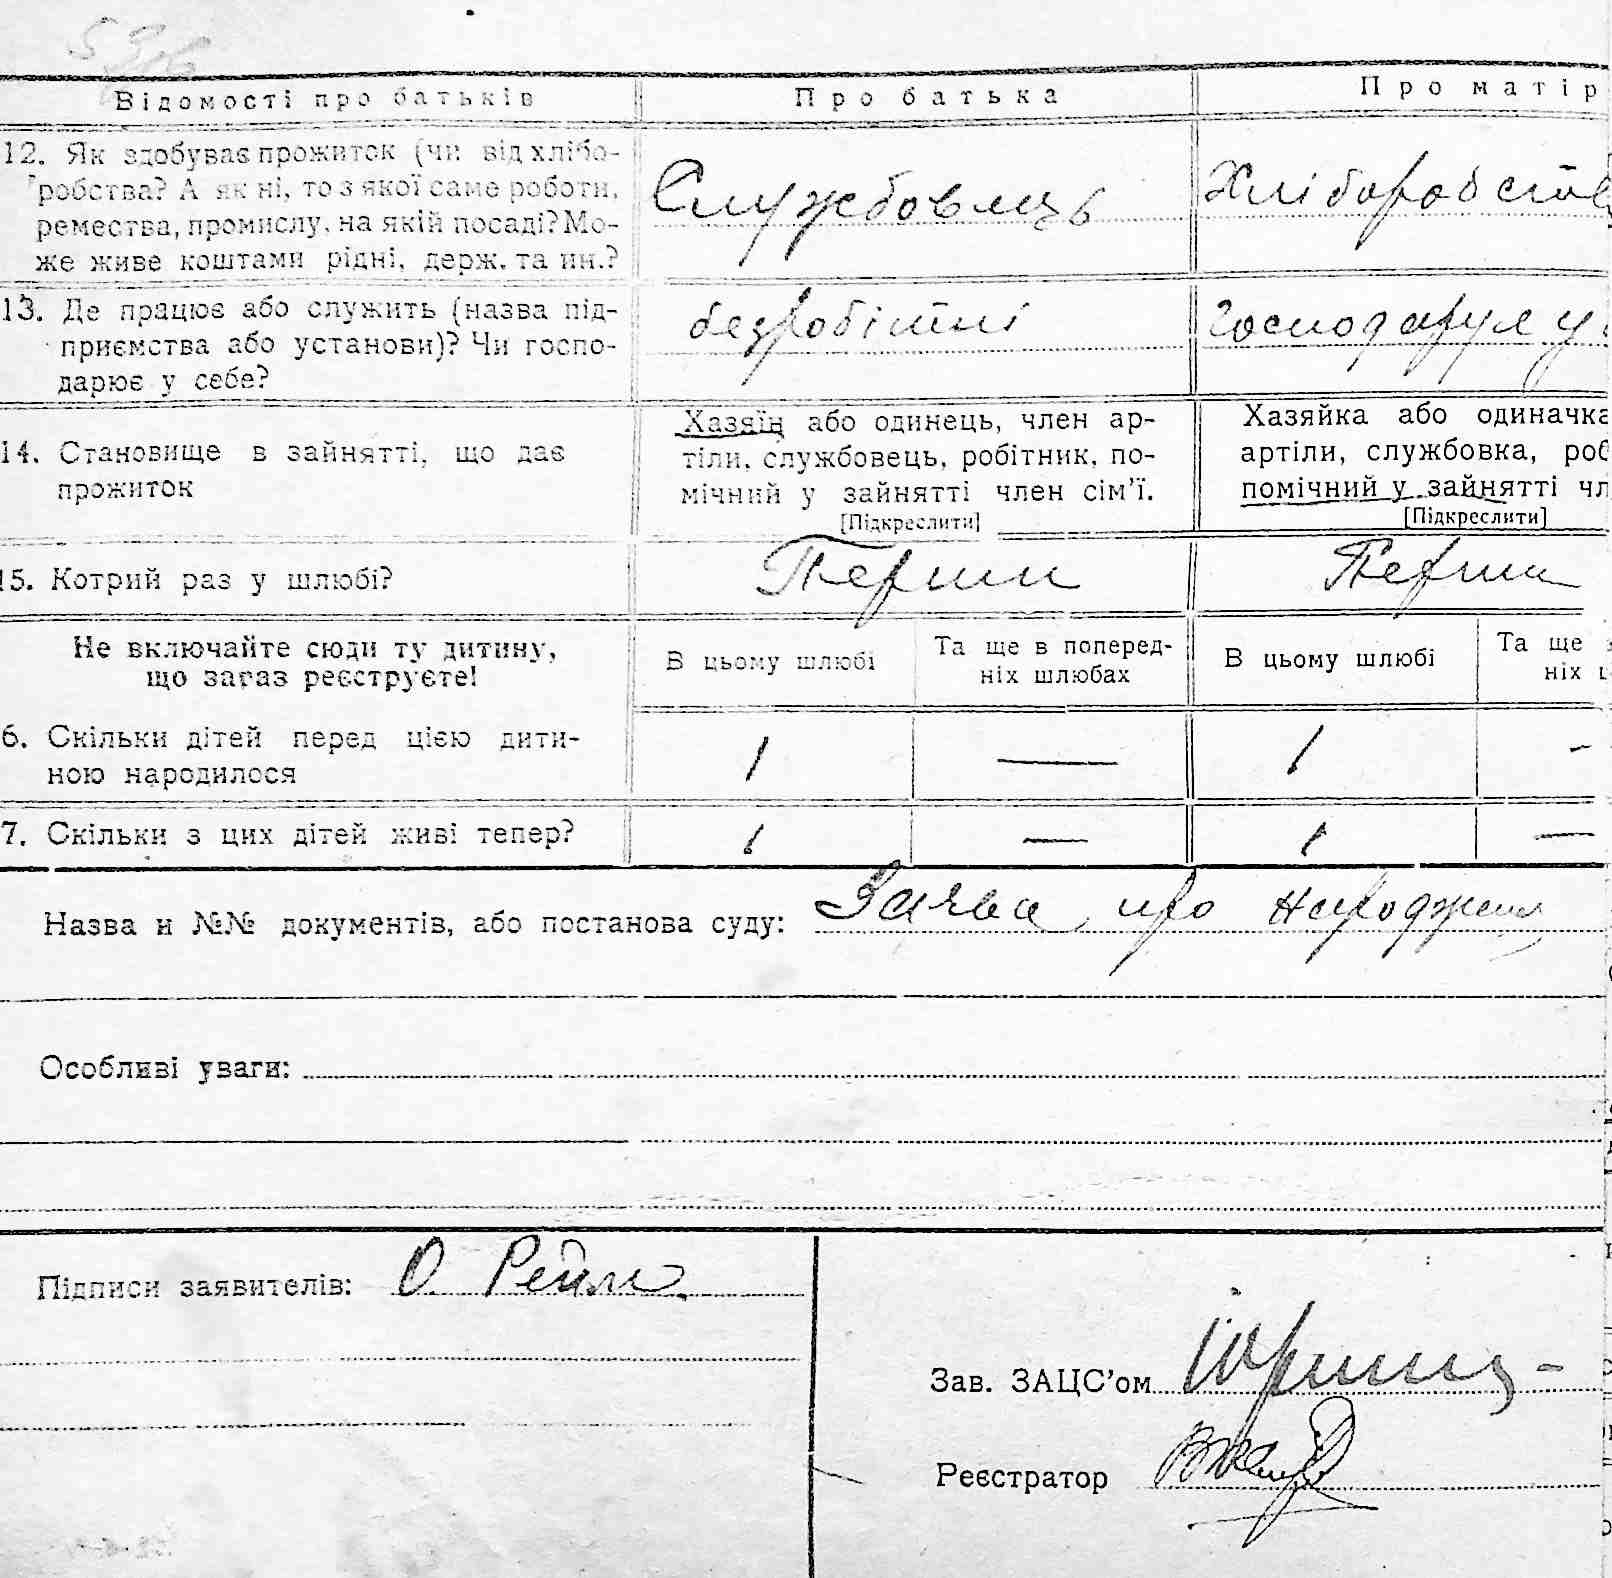 Відомості про батьків
Про батька
Про матір
12. Як здобуває прожиток (чи від хлібо-
робства? А як ні, то з якої саме роботи,
ремества, промислу, на якій посаді? Мо-
же живе коштами рідні, держ. та ин.?
Службовець
Хліборобств
13. Де працює або служить (назва під-
приємства або установи)? Чи госпо-
дарює у себе?
безробітні
господарує у
14. Становище в зайнятті, що дає
прожиток
Хазяїн або одинець, член ар-
тіли, службовець, робітник, по-
мічний у зайнятті член сім’ї.
[Підкреслити]
Хазяйка або одиначка
артіли, службовка, роб
помічний у зайнятті чл
[Підкреслити]
15. Котрий раз у шлюбі?
Перши
Перши
Не включайте сюди ту дитину,
що зараз реєструєте!
В цьому шлюбі
Та ще в поперед-
ніх шлюбах
В цьому шлюбі
Та ще
ніх
6. Скільки дітей перед цією дити-
ною народилося
1 — 1 -
7. Скільки з цих дітей живі тепер?
1 — 1 —
Назва и №№ документів, або постанова суду: Заява про народження
Особливі уваги:
Підписи заявителів: О. Рейм
Зав. ЗАЦС’ом
Реєстратор